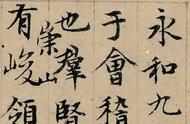 永和九
于會稽
也羣賢
有崇山峻領